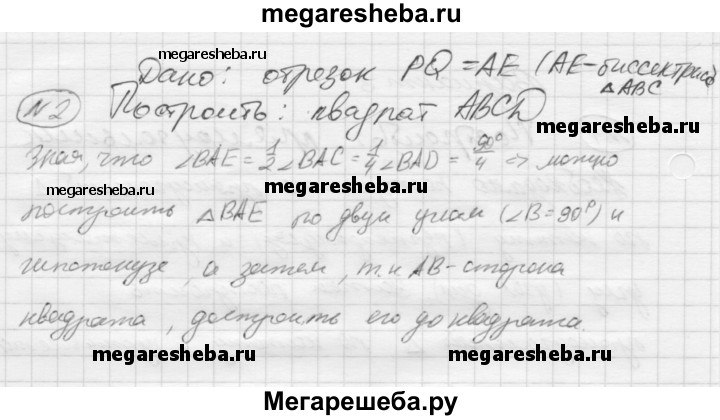 megaresheba.ru
megaresheba.ru
Дано: отрезок PQ = AE (AE-биссектриса
△ABC
№2 Построить: квадрат ABCD
Зная, что ∠BAE = 1/2 ∠BAC = 1/4 ∠BAD = 90°/4 => можно
построить △BAE по двум углам (∠B = 90°) и
гипотенузе, а затем, т.к AB-сторона
квадрата, достроить его до квадрата.
megaresheba.ru megaresheba.ru
Мегарешеба.ру